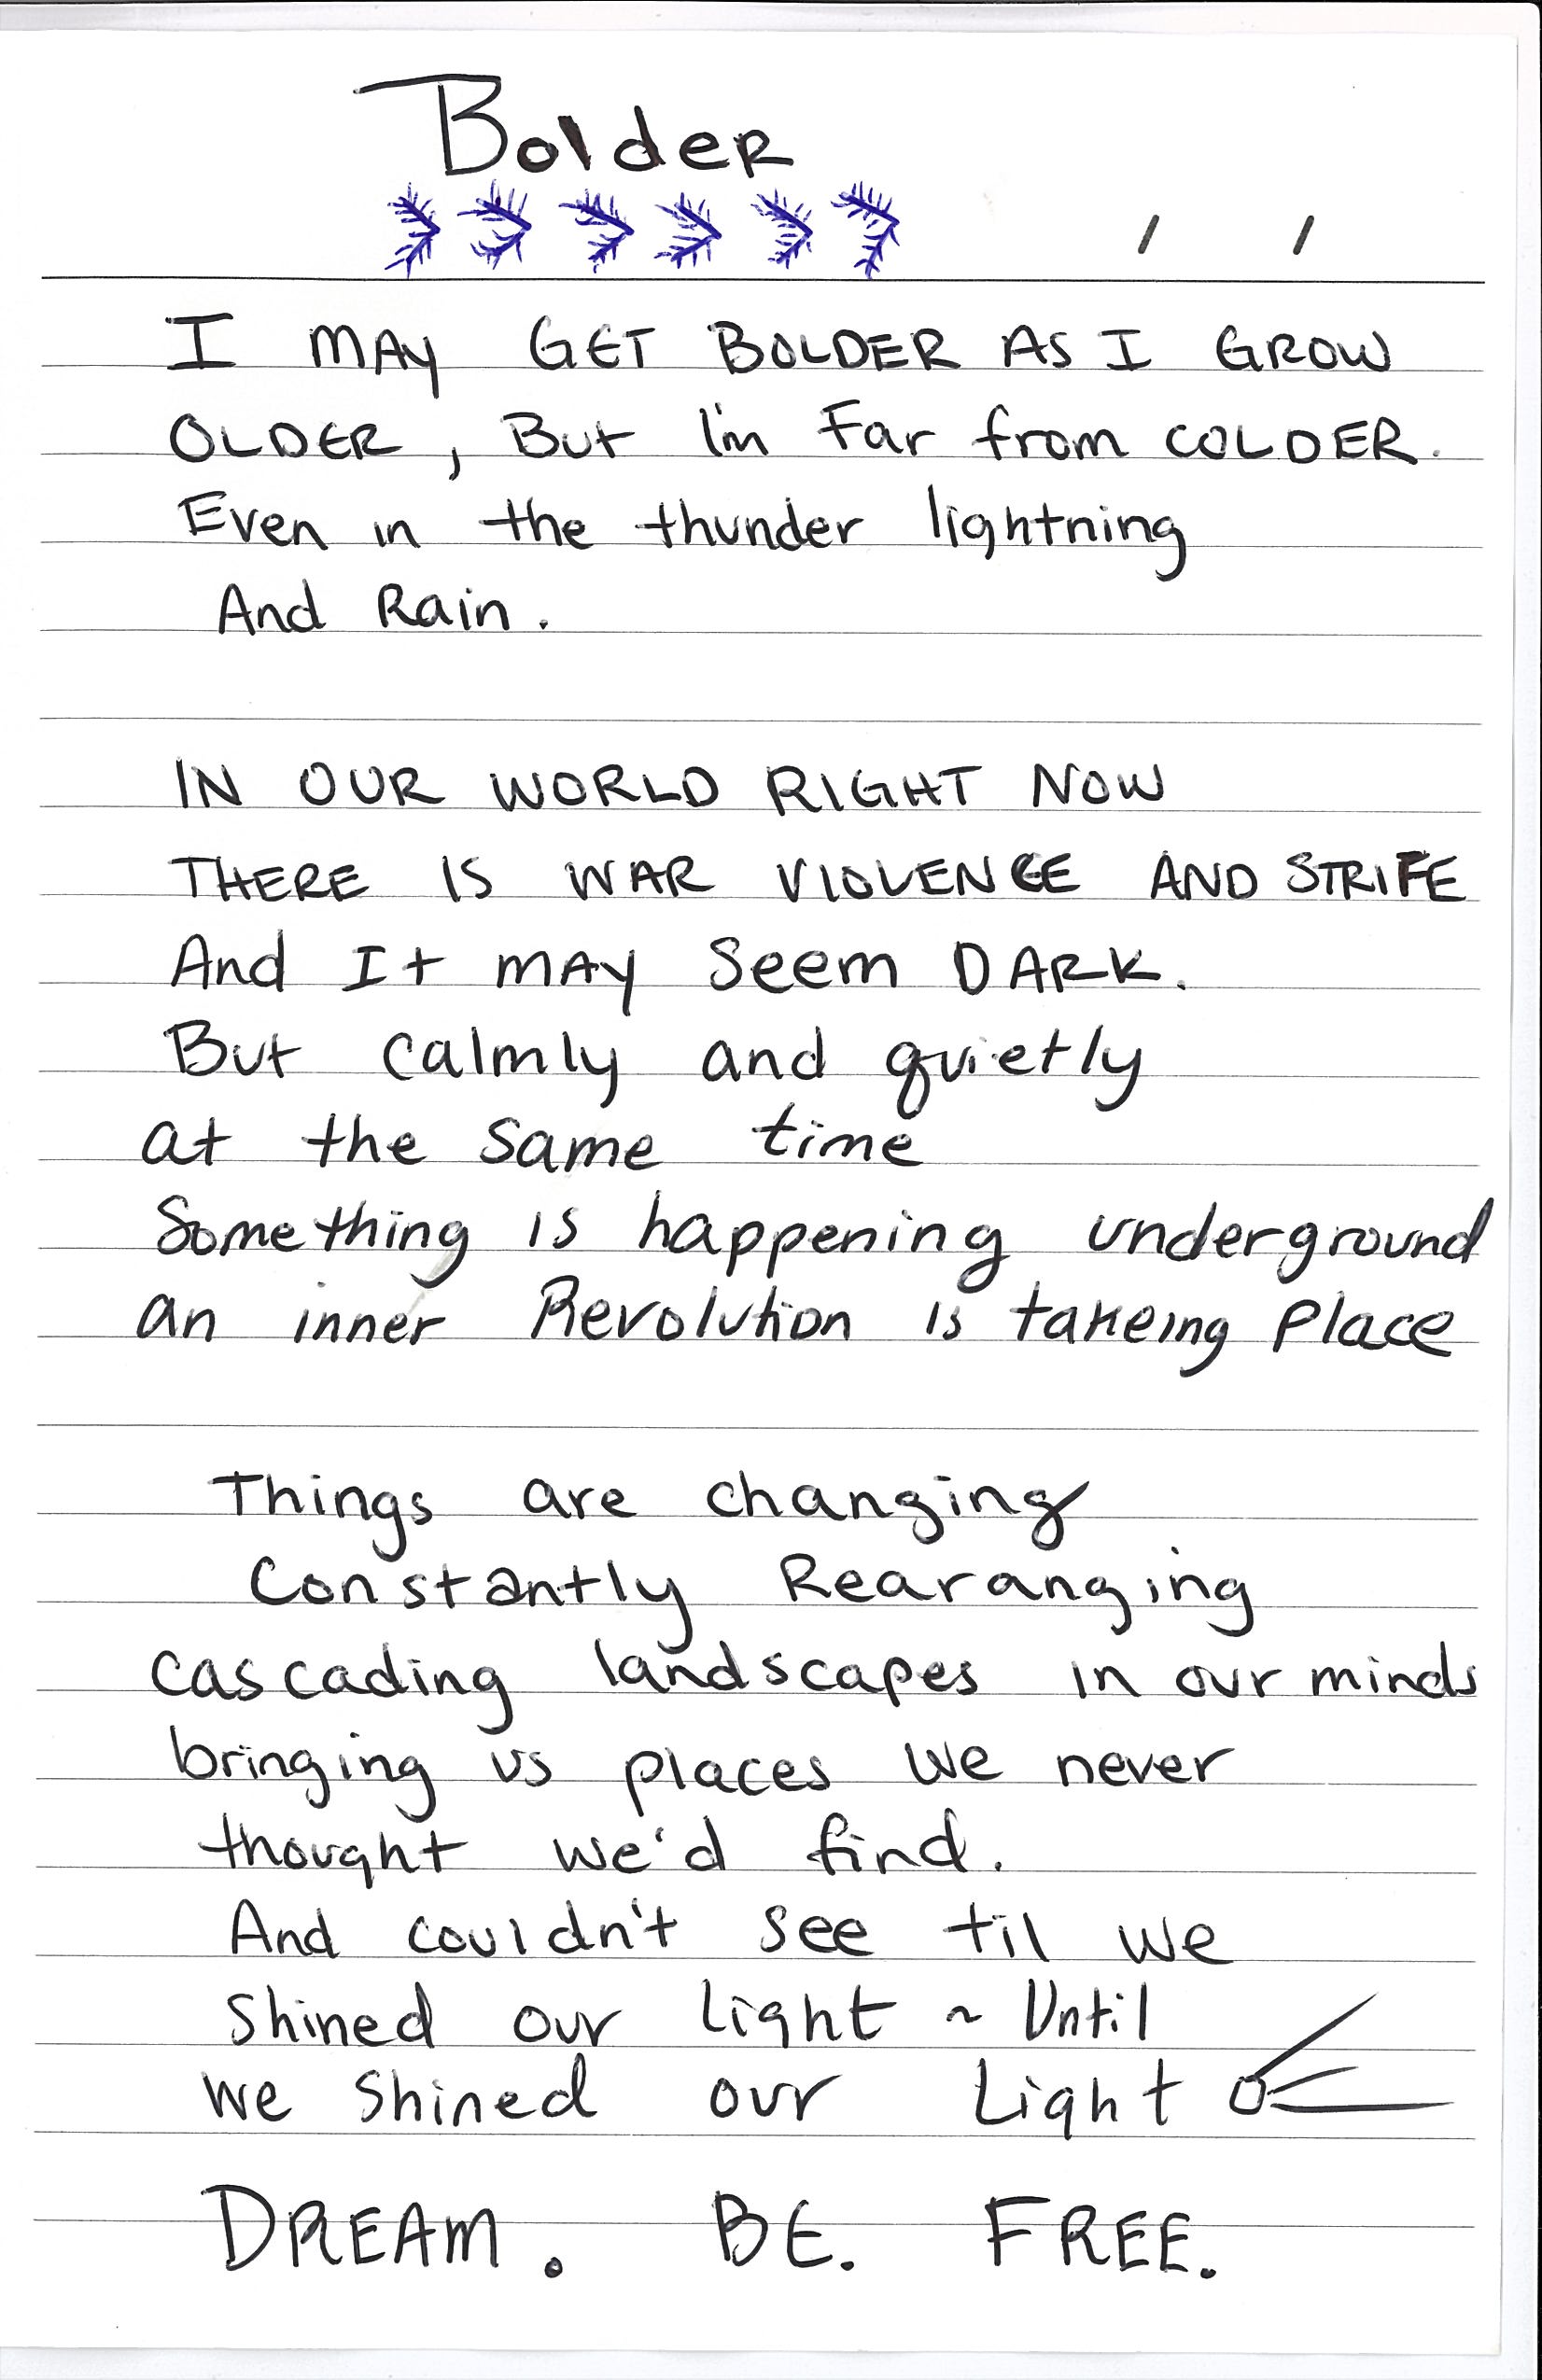 Bolder
/ /
I MAY GET BOLDER AS I GROW
OLDER, But I'm Far from COLDER.
Even in the thunder lightning
And Rain.
IN OUR WORLD RIGHT NOW
THERE IS WAR VIOLENCE AND STRIFE
And It MAY Seem DARK.
But calmly and quietly
at the same time
Something is happening underground
an inner Revolution is takeing Place
Things are changing
Constantly Rearanging
cascading landscapes in our minds
bringing us places we never
thought we'd find.
And couldn't see til we
shined our light ~ Until
we shined our Light
DREAM. BE. FREE.